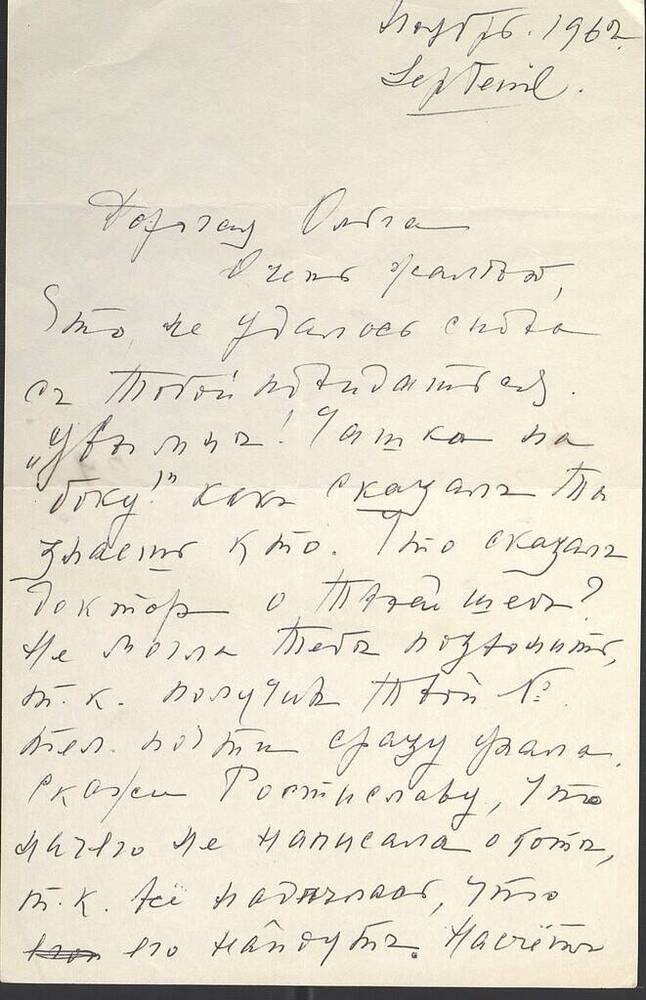 Ноябрь. 1962.
Septeuil.
Дорогая Ольга
Очень жалѣю,
Что не удалось снова
съ тобой повидаться.
"Увы мнѣ! Чашка на
боку!" какъ сказалъ ты
знаешь кто. Что сказалъ
докторъ о твоей шеѣ?
Не могла тебѣ позвонить,
т. к. получивъ твой №
тел. почти сразу уѣхала.
Скажи Ростиславу, что
ничего не написала о котѣ,
т. к. всё надѣялась, что
его найдутъ. Насчётъ